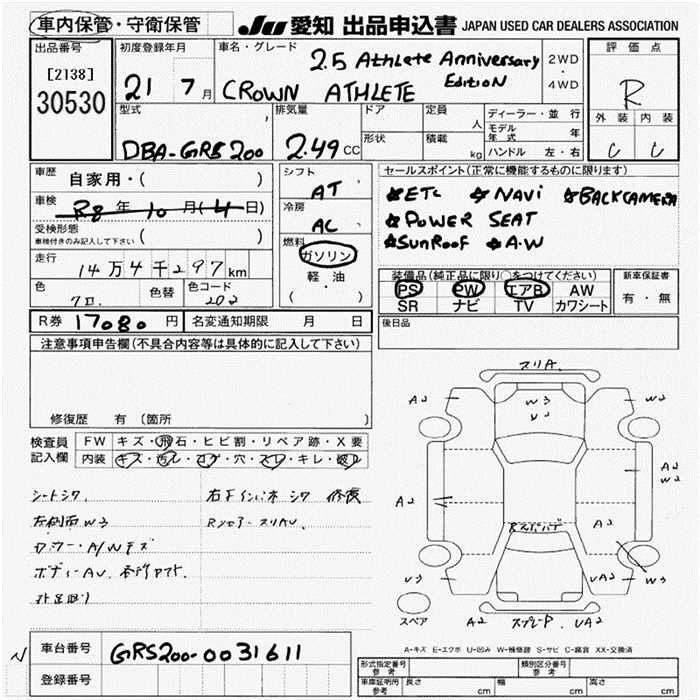 車内保管・守衛保管
JU 愛知 出品申込書 JAPAN USED CAR DEALERS ASSOCIATION
出品番号
[2138]
30530
初度登録年月
21 7月
車名・グレード
2.5 Athlete Anniversary
Edition
CROWN ATHLETE
2WD
・
4WD
評価点
R
外装 内装
C C
型式
DBA-GRS200
排気量
2.49CC
ドア
形状
定員
人
積載
kg
ディーラー・並行
モデル年式 年
ハンドル 左・右
車歴
自家用・( )
車検
R8年10月(4日)
受検形態
車検付きのみ記入して下さい ( )
走行
14万4千297km
色
クロ
色替
色コード
202
シフト
AT
冷房
AC
燃料
ガソリン
軽・油
( )
セールスポイント(正常に機能するものに限ります)
★ETC ★NAVi ★BACKCAMERA
★POWER SEAT
★SunRoof ★A.W
装備品(純正品に限り○をつけてください)
PS PW エアB AW
SR ナビ TV カワシート
新車保証書
有・無
R券 17080円
名変通知期限 月 日
後日品
注意事項申告欄(不具合内容等は具体的に記入して下さい)
修復歴 有(箇所 )
検査員
記入欄
FW キズ・飛石・ヒビ割・リペア跡・X要
内装 キズ・汚レ・コゲ・穴・スレ・キレ・破レ
シートシワ
右Fインパネ シワ 修復
左側面W3
ボディーAU
スリA
A2
W3
A2
W2
A2
W3
U2
A2
A2
W2
A2
U3
UA2
W3
スペア
A2
UA2
A-キズ E-エクボ U-凹み W-補修跡 S-サビ C-腐食 XX-交換済
N
車台番号
GRS200-0031611
登録番号
形式指定番号
参考
類別区分番号
参考
車庫証明用
参考
長さ cm
幅 cm
高さ cm